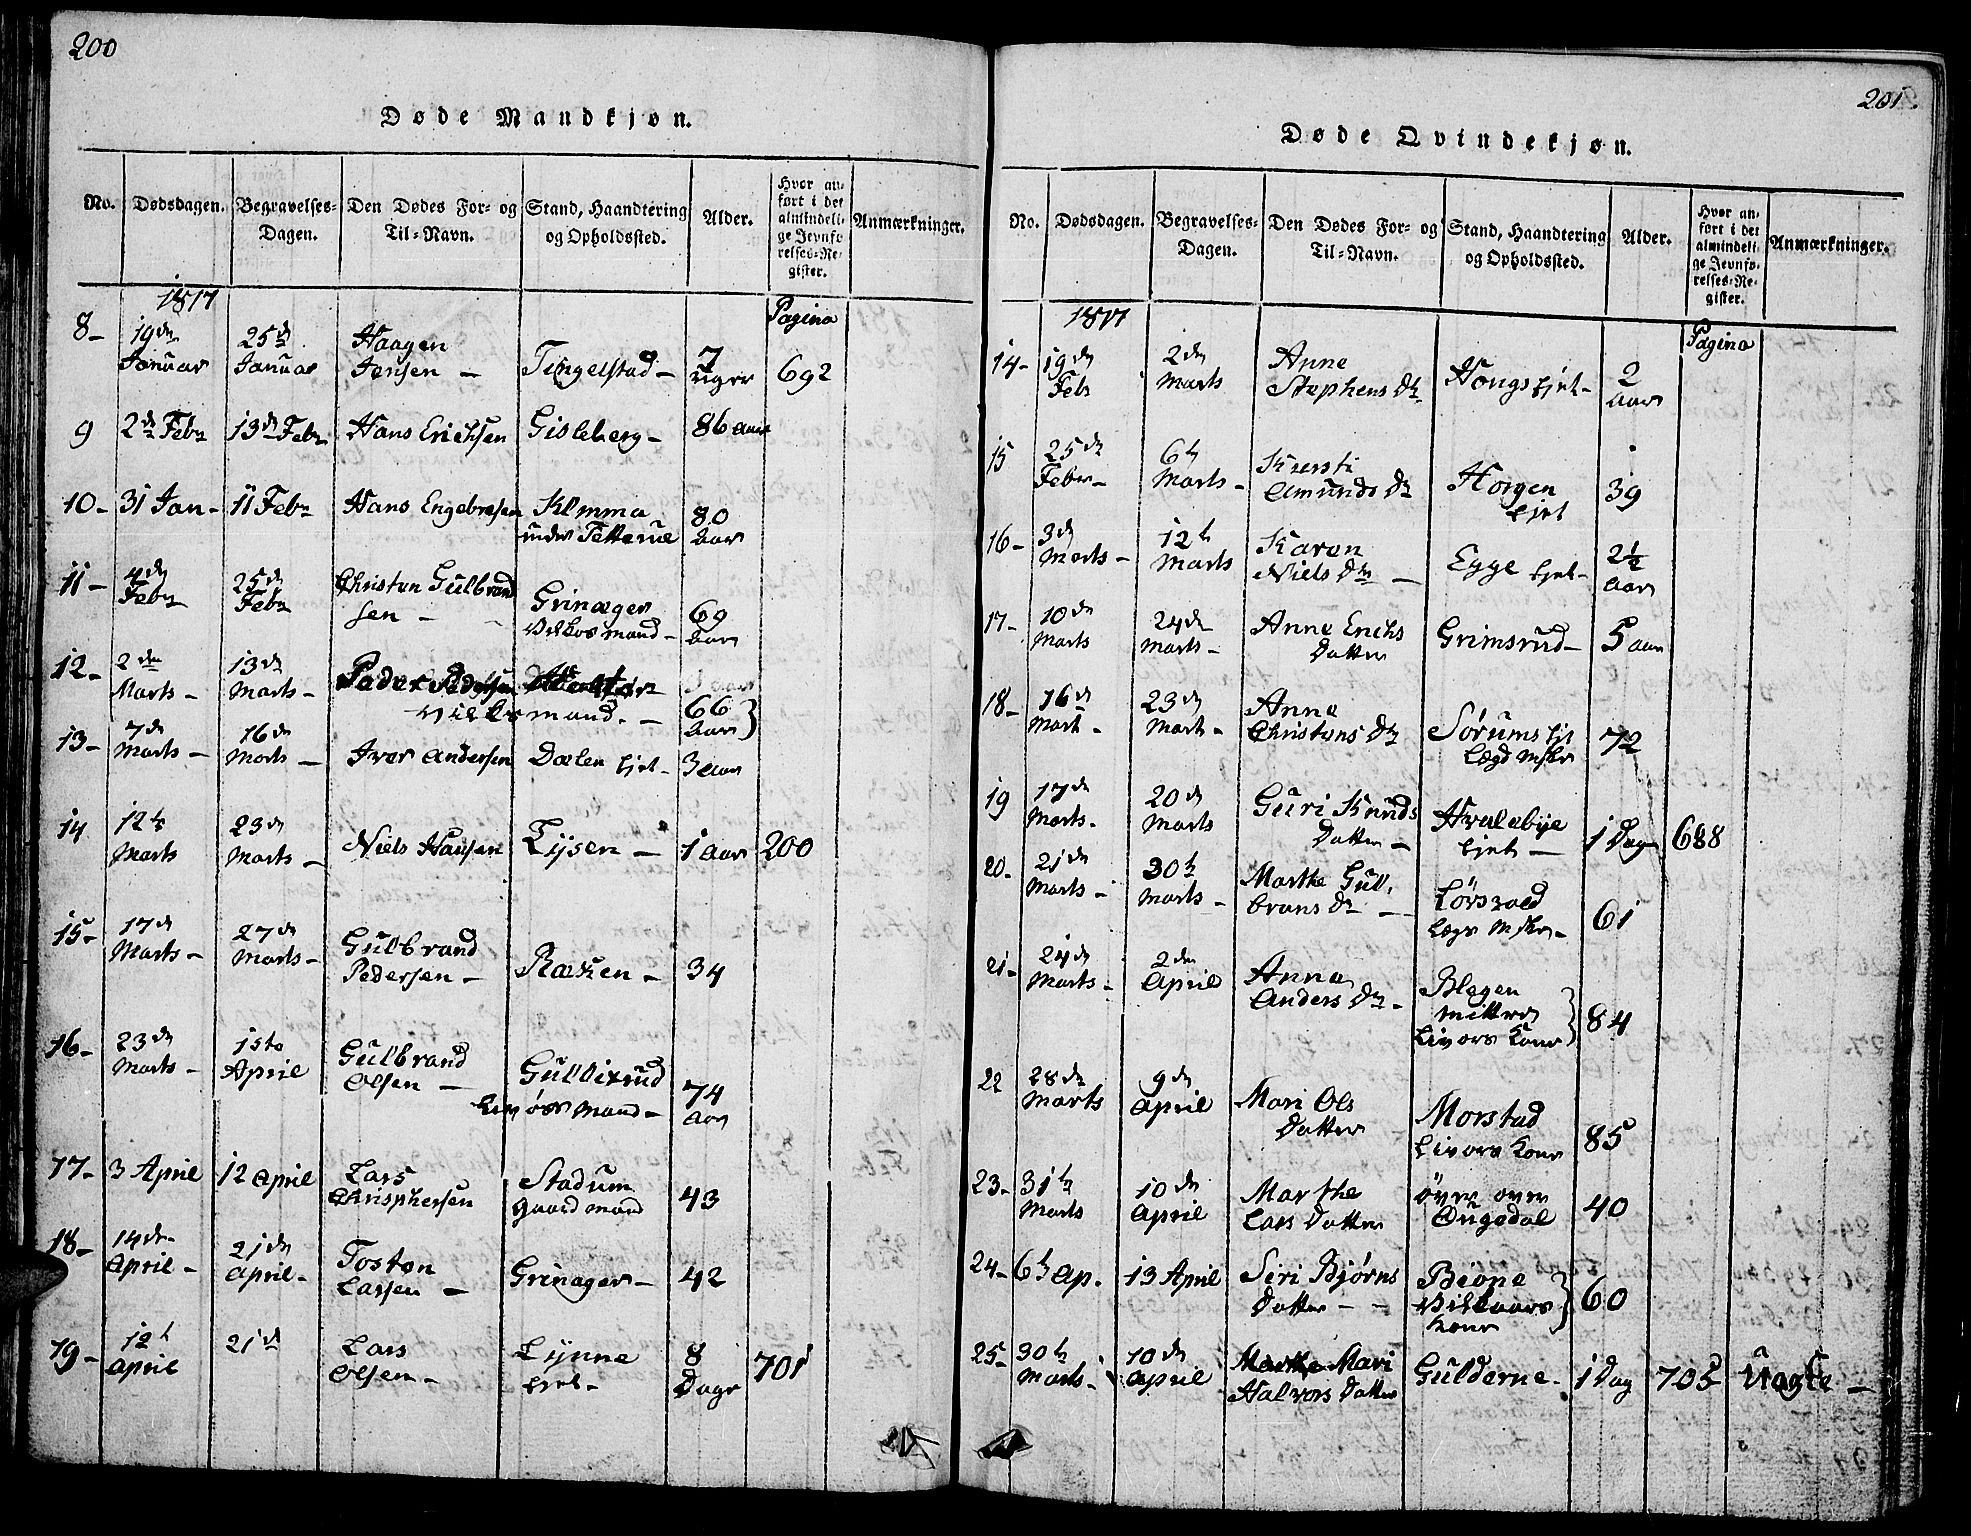 200
Døde Mandkjøn.
No. Dødsdagen. Begravelses-Dagen. Den Dødes For- og Til-Navn. Stand, Haandtering og Opholdssted. Alder. Hvor anført i det almindelige Jevnførelses-Register. Anmærkninger.
1817 Pagina
8- 19de Januar 25de Januar Haagen Jensen - Tingelstad - 7 uger 692
9 2de Febr 13de Febr Hans Erichsen Gisleberg - 86 aar
10- 31 Jan- 11 Febr Hans Engebresen Klemma under Tetterue 80 aar
11- 4de Febr 25de Febr Christen Gulbrandsen - Grinager Vilkosmand - 69 aar
12- 2den Marts- 13de Marts- Peder Pedersen Vilkosmand. - 66 aar
13- 7de Marts- 16de Marts- Iver Andersen Dælen Ejet- 3 aar
14 12te Marts 23de Marts- Niels Hansen Lysen - 1 aar 200
15- 17de Marts- 27de Marts- Gulbrand Pedersen - Ræken - 34
16- 23de Marts- 1ste April Gulbrand Olsen - Guldixrud Livørsmand- 74 aar
17- 3 April 12 April Lars Chrisphersen Stadum gaardmand 43
18- 14de April- 21de April- Tosten Larsen - Grinager- 42
19- 12te April 21de Lars Olsen- Lynne Ejet- 8 Dage 701
201.
Døde Qvindekjøn.
No. Dødsdagen. Begravelses-Dagen. Den Dødes For- og Til-Navn. Stand, Haandtering og Opholdssted. Alder. Hvor anført i det almindelige Jevnførelses-Register. Anmærkninger.
1817 Pagina
14- 19de Febr 2de Marts Anne Stephens Dr Hongs Ejet- 2 aar
15 25de Febr- 6te Marts- Kiersti Amunds Dr Horgen Ejet 39
16- 3de Marts- 12te Marts Karen Niels Dr - Egge Ejet- 2½ aar
17- 10de Marts 24de Marts- Anne Erichs Datter Grimsrud- 5 aar
18- 16de Mart- 23de Mart- Anne Christens Dr Sørums Ejt Lægd 72
19 17de Marts- 20de Marts Guri Knuds Datter - Hvalebye Ejet - 1 Dag 688
20- 21de Marts- 30te Marts- Marthe Gulbrans Dr - 61
21- 24de Marts- 2den April Anne Anders Dr- Blegen Livørs Kone 84
22 28de Marts 9de April Mari Ols Datter Morstad Livørs Kone 85
23- 31te Marts 10de April Marthe Lars Datter 40
24- 6te Ap. 13 April Siri Bjørns Datter - - Bione Vilkaars Kone 60
25- 30te Marts- 10de April Marthe Mari Halvors Datter Gulderne- 1 Dag 705 Uægte -